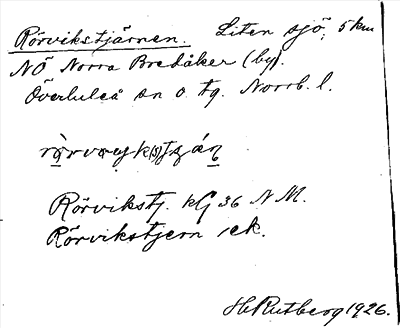 Rörvikstjärnen. Liten sjö, 5 km
NÖ Norra Bredåker (by).
Överluleå sn o. tg. Norrb. l.
Rörvikstj. kG 36 N M.
Rörvikstjern ek.
H Rutberg 1926.